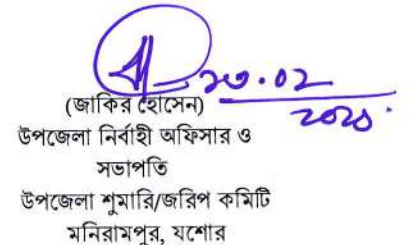 (জাকির হোসেন)
উপজেলা নির্বাহী অফিসার ও
সভাপতি
উপজেলা শুমারি/জরিপ কমিটি
মনিরামপুর, যশোর